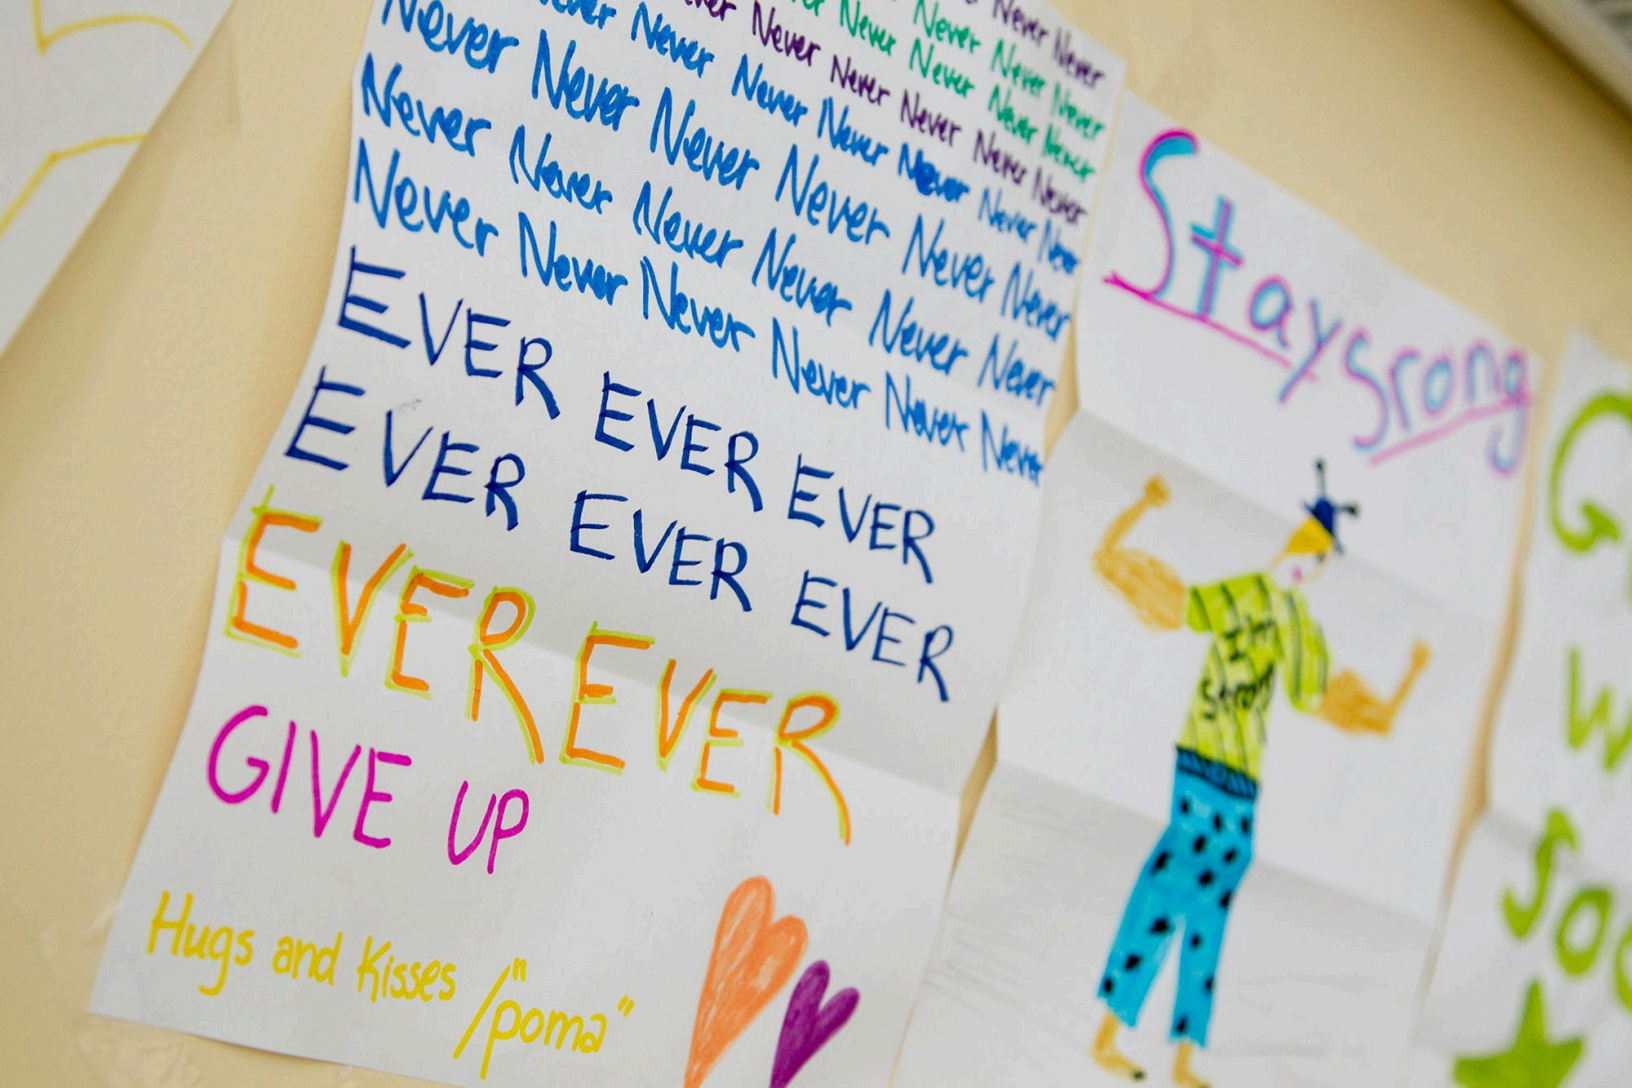 Never Never
Never Never Never
Never Never Never Never
Never Never Never Never Never
Never Never Never Never Never Never Never
Never Never Never Never Never Never
Never Never Never Never Never Never
Never Never Never Never Never Never
EVER EVER EVER
EVER EVER EVER
EVER EVER
GIVE UP
Hugs and Kisses
/"poma"
Stay Srong
I'm
strong